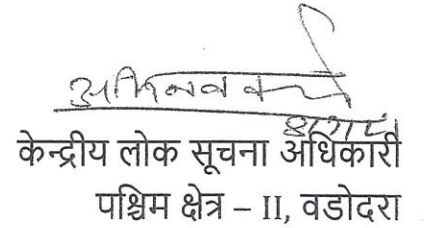 अभिनव वर्मा
केन्द्रीय लोक सूचना अधिकारी
पश्चिम क्षेत्र – II, वडोदरा